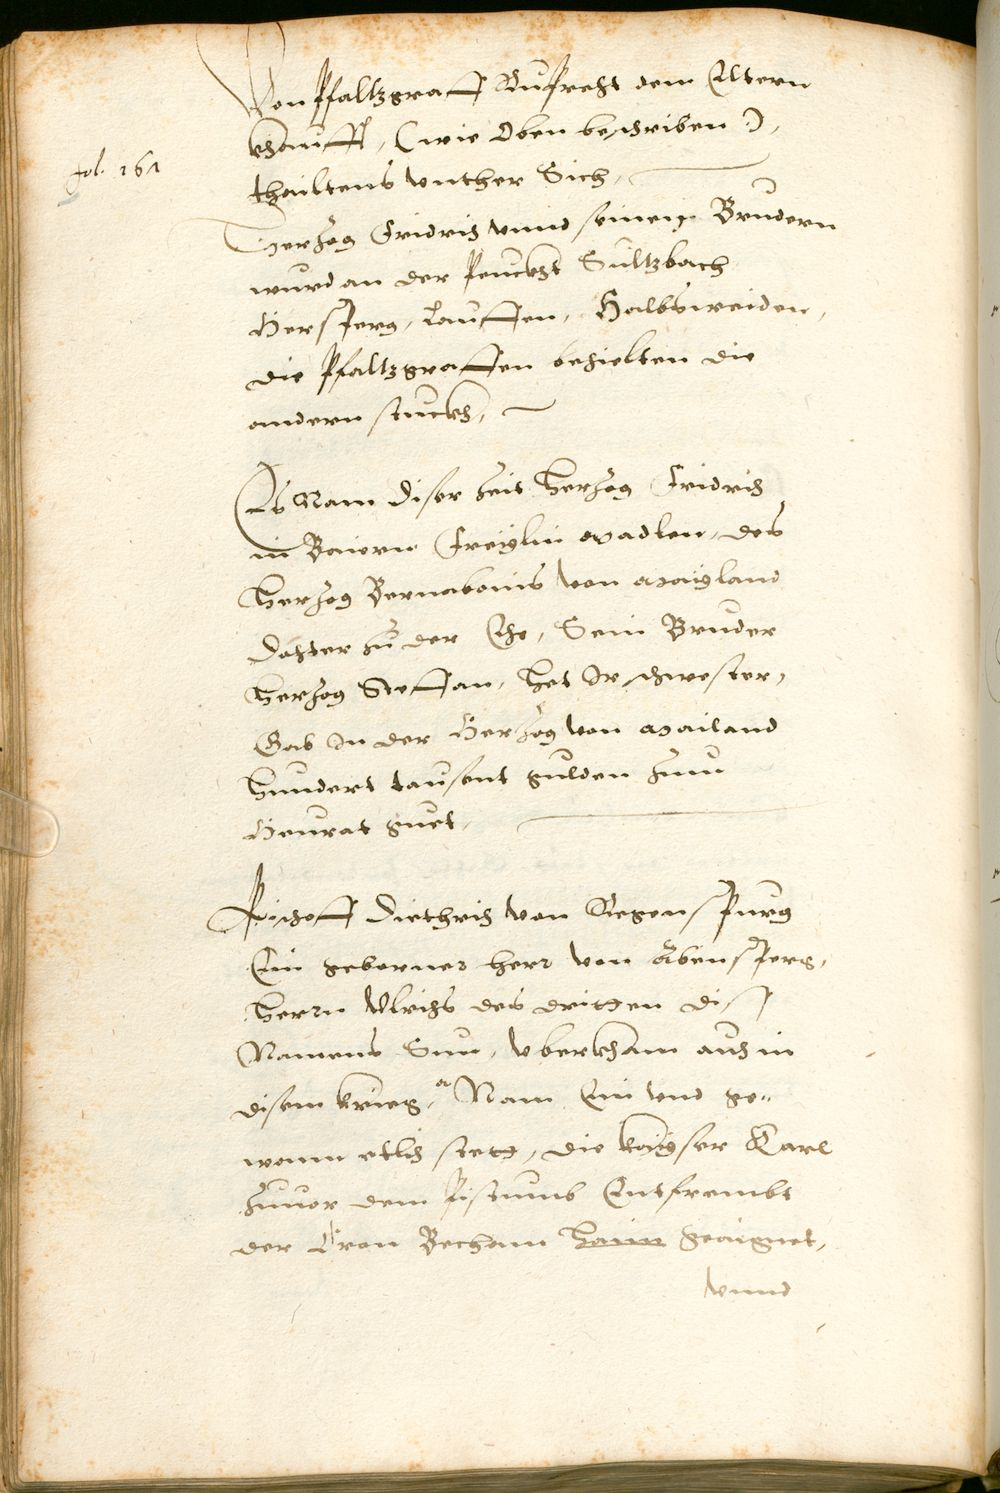 Von Pfaltzgraff Ruprecht dem Eltern
khaufft, (wie Oben beschriben :),
fol. 161
thailtens vnther Sich,
Herzog Fridrich vnnd seinen Brudern
wurd an der Peuckht Sultzbach
Hersperg, Lauffen, Halbsweiden,
die Pfaltzgraffen behielten die
andern stuckh,
Es Nam diser Zeit Herzog Fridrich
in Baiern Freylin Madlen, des
Herzog Bernabonis von Mayland
Dochter zu der Ehe, Sein Bruder
Herzog Steffan, het Ir schwester,
Gab In der Herzog von Mailand
Hundert tausent gulden zum
Heurat guet,
Bischoff Diethrich von Regenspurg
Ein geborner herr von Abensperg,
Herrn Vlrichs des dritten dis
Namens Sun, vberkham auch in
disem krieg, Nam Ein vnd ge„
wonn etlich stett, die kayser Karl
zuuor dem Pistumb Entfrembt
der Cron Becham geaignet,
vnnd